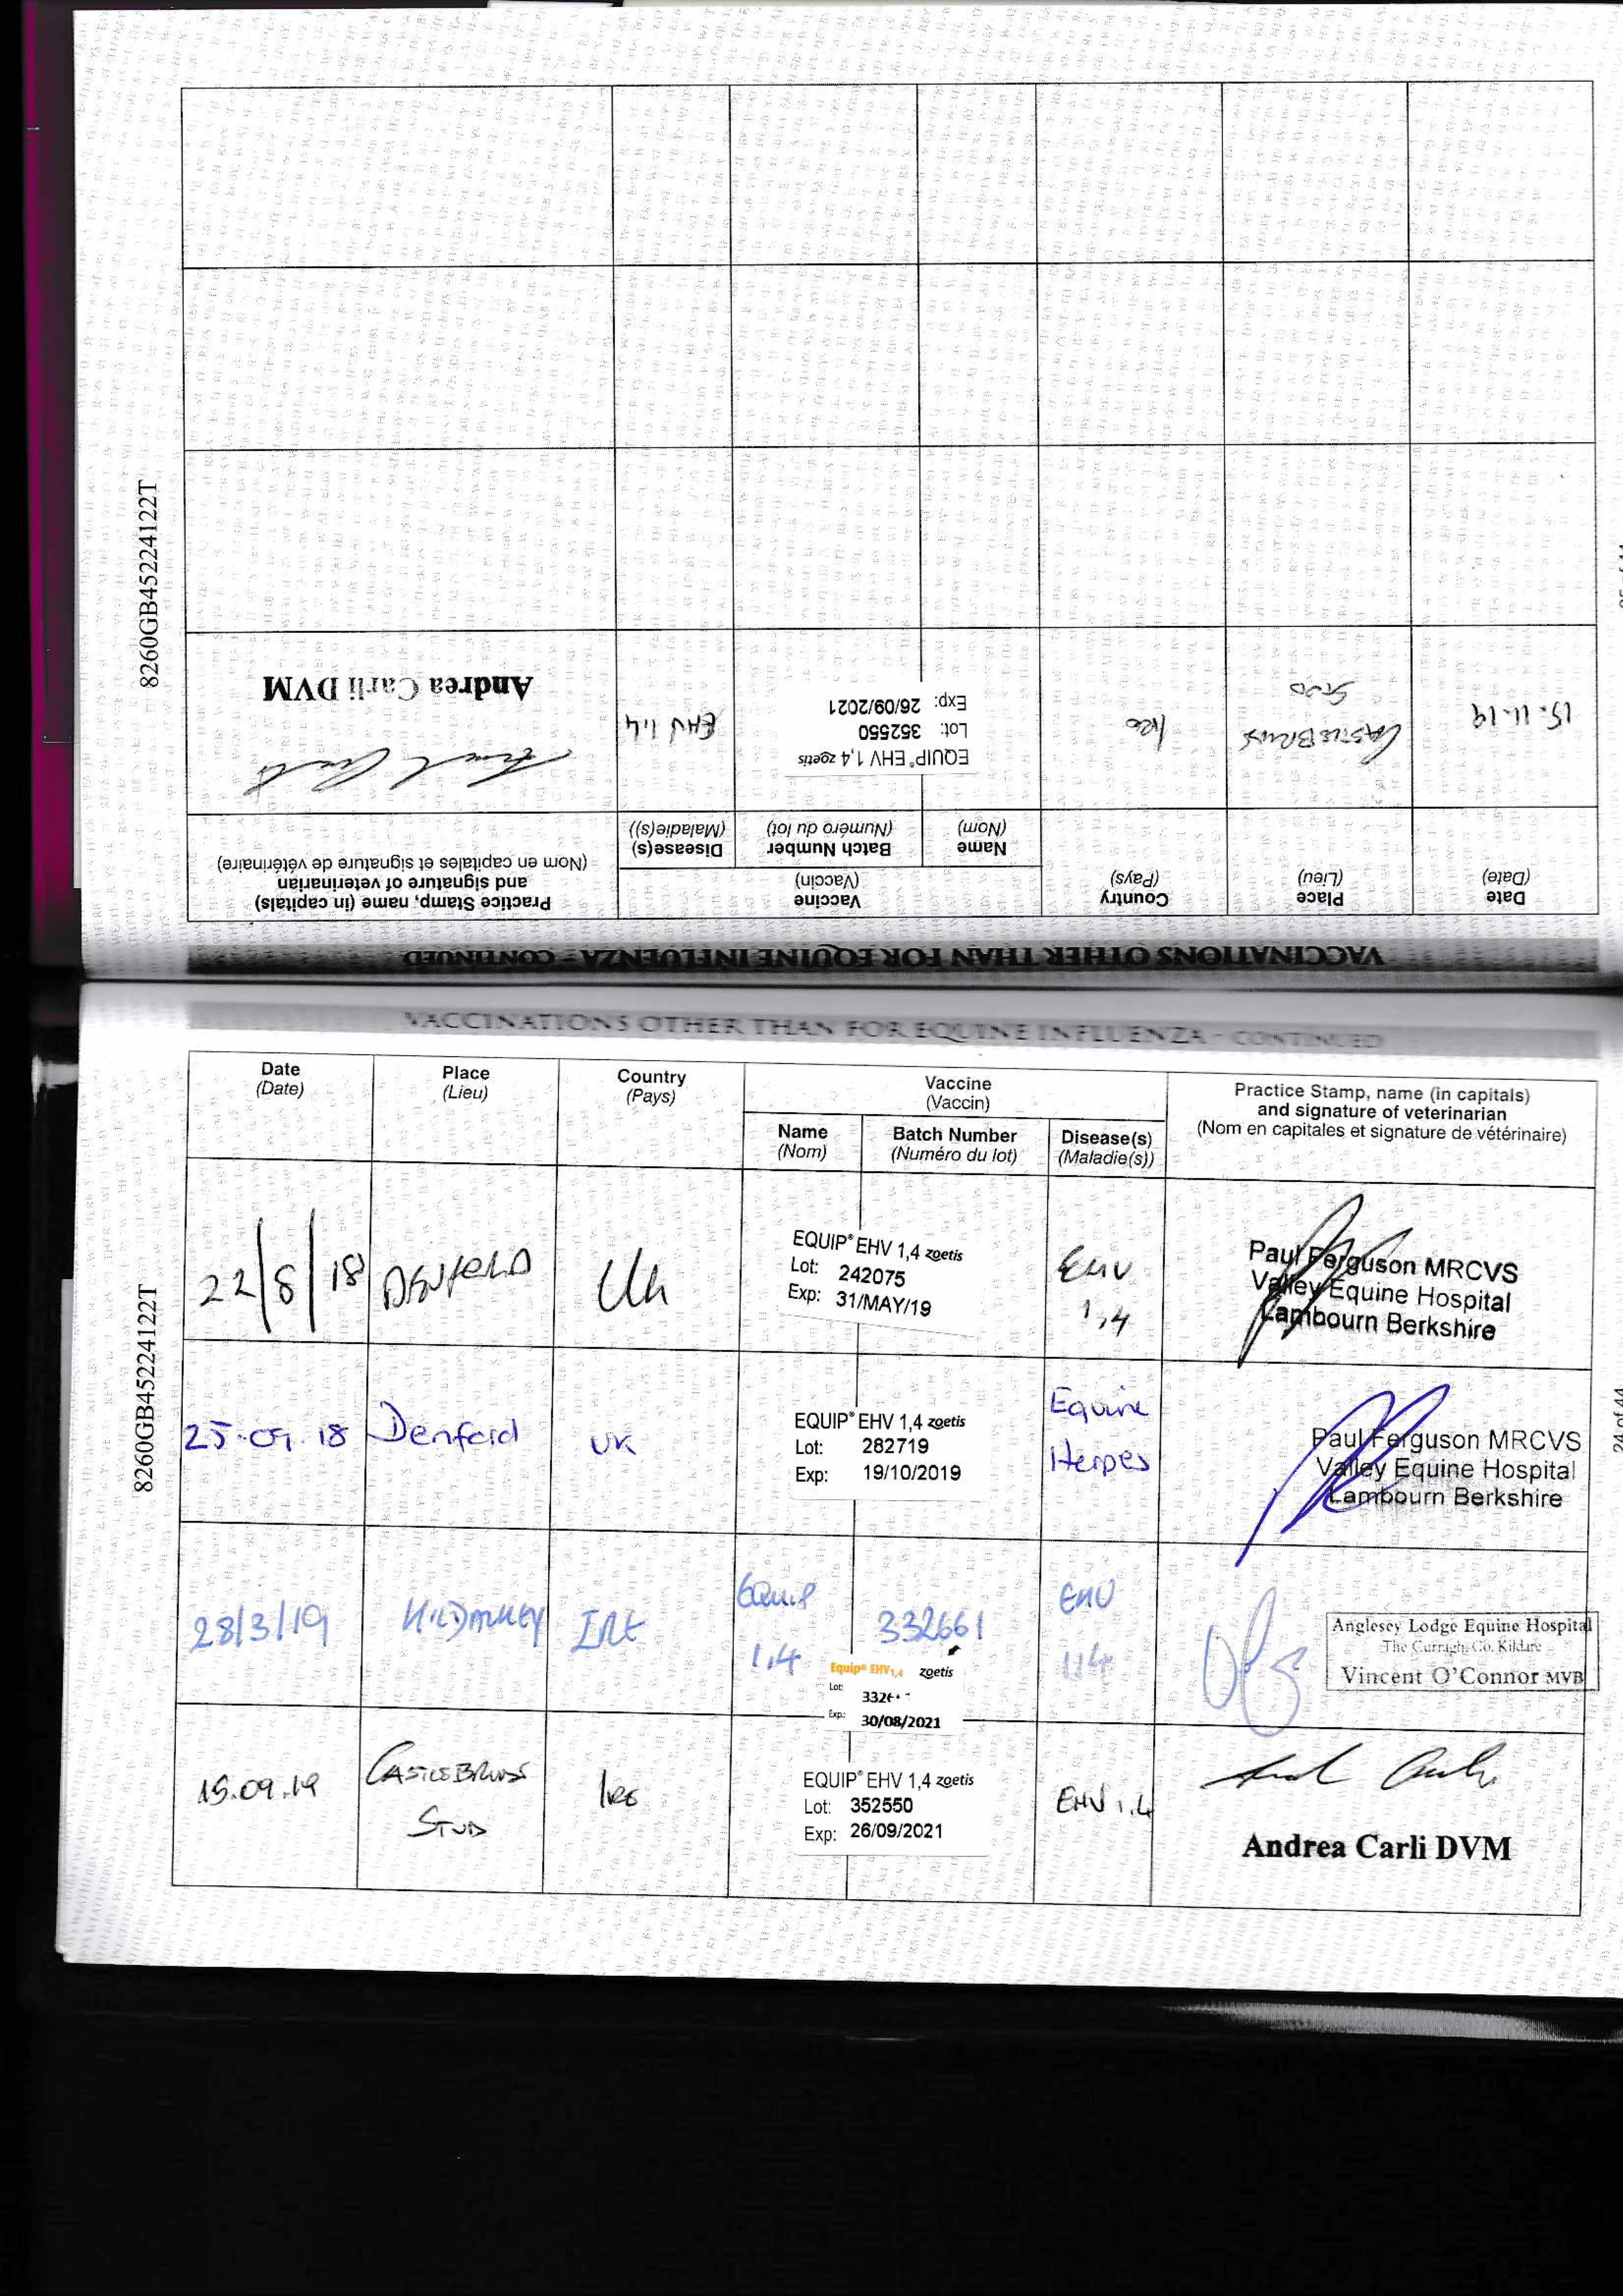 VACCINATIONS OTHER THAN FOR EQUINE INFLUENZA - CONTINUED
Date
(Date)
Place
(Lieu)
Country
(Pays)
Vaccine
(Vaccin)
Name
(Nom)
Batch Number
(Numéro du lot)
Disease(s)
(Maladie(s))
Practice Stamp, name (in capitals)
and signature of veterinarian
(Nom en capitales et signature de vétérinaire)
22/8/18
DENFORD
Uk
EQUIP® EHV 1,4 zoetis
Lot: 242075
Exp: 31/MAY/19
EHV
1,4
Paul Ferguson MRCVS
Valley Equine Hospital
Lambourn Berkshire
25.09.18
Denford
UK
EQUIP® EHV 1,4 zoetis
Lot: 282719
Exp: 19/10/2019
Equine
Herpes
Paul Ferguson MRCVS
Valley Equine Hospital
Lambourn Berkshire
28/3/19
IRE
Equip
1,4
332661
Equip® EHV1,4 zoetis
Lot:
Exp: 30/08/2021
EHV
1,4
Anglesey Lodge Equine Hospital
The Curragh, Co. Kildare
Vincent O'Connor MVB
15.09.19
STUD
IRE
EQUIP® EHV 1,4 zoetis
Lot: 352550
Exp: 26/09/2021
EHV 1.4
Andrea Carli DVM
8260GB45224122T
24 of 44
VACCINATIONS OTHER THAN FOR EQUINE INFLUENZA - CONTINUED
Date
(Date)
Place
(Lieu)
Country
(Pays)
Vaccine
(Vaccin)
Name
(Nom)
Batch Number
(Numéro du lot)
Disease(s)
(Maladie(s))
Practice Stamp, name (in capitals)
and signature of veterinarian
(Nom en capitales et signature de vétérinaire)
15.11.19
STUD
IRE
EQUIP® EHV 1,4 zoetis
Lot: 352550
Exp: 26/09/2021
EHV 1.4
Andrea Carli DVM
8260GB45224122T